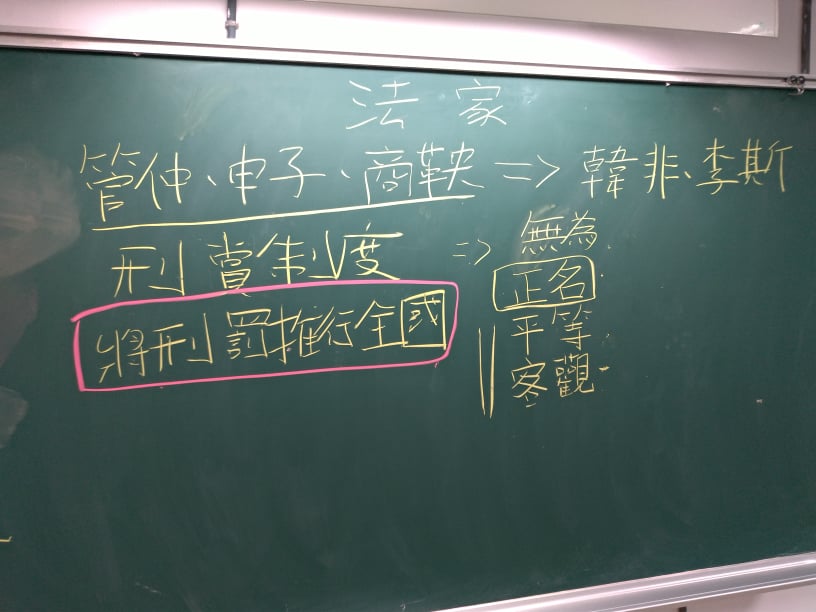 法家
管仲、申子、商鞅 => 韓非、李斯
刑賞制度 => 無為
正名
將刑罰推行全國
平等
客觀